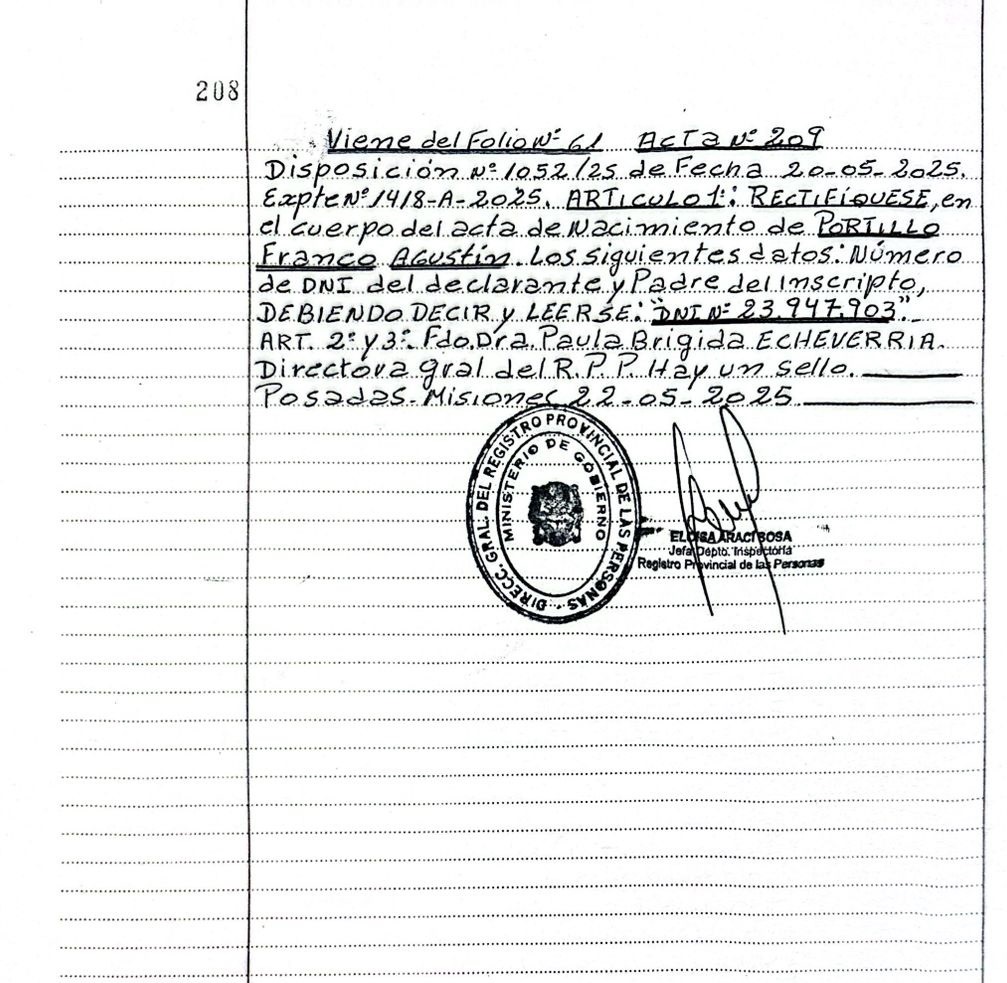 208
Viene del Folio Nº 61 ACTA Nº 209
Disposición Nº 1052/25 de Fecha 20-05-2025.
Expte Nº 1418-A-2025. ARTICULO 1º: RECTIFÍQUESE, en
el cuerpo del acta de Nacimiento de PORTILLO
Franco Agustín. Los siguientes datos: Número
de DNI del declarante y Padre del Inscripto,
DEBIENDO DECIR y LEERSE: "DNI Nº 23.947.903".
ART. 2º y 3º. Fdo. Dra. Paula Brigida ECHEVERRIA.
Directora Gral del R.P.P. Hay un sello.
Posadas-Misiones 22-05-2025.
DIRECC. GRAL. DEL REGISTRO PROVINCIAL DE LAS PERSONAS
MINISTERIO DE GOBIERNO
ELOISA ARACI SOSA
Jefa Depto. Inspectoría
Registro Provincial de las Personas